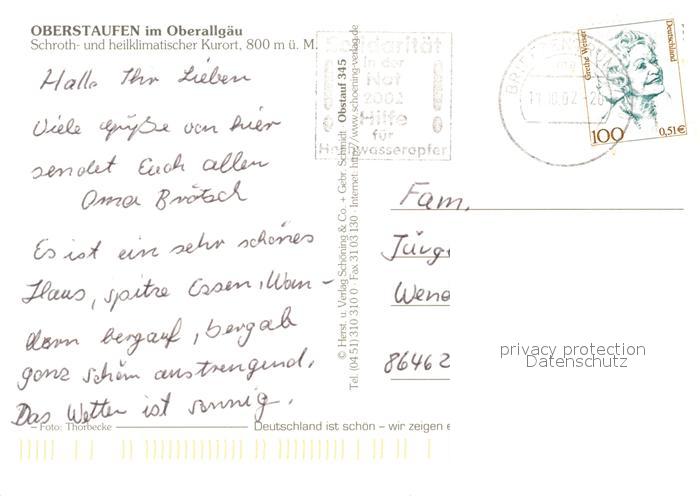 OBERSTAUFEN im Oberallgäu
Schroth- und heilklimatischer Kurort, 800 m ü. M.
Hallo Ihr Lieben
Viele Grüße von hier
sendet Euch allen
Oma Brötsch
Es ist ein sehr schönes
Haus, spitze Essen, Wan-
dern bergauf, bergab
ganz schön anstrengend.
Das Wetter ist sonnig.
Foto: Thorbecke
Deutschland ist schön – wir zeigen e
© Herst. u. Verlag Schöning & Co. + Gebr. Schmidt Obstauf 345
Tel. (04 51) 310 310 0 · Fax 31 03 130 · Internet: http://www.schoening-verlag.de
Solidarität
in der
Not
2002
Hilfe
für
Hochwasseropfer
BRIEFZENTRUM
Grethe Weiser
Deutschland
100
0,51€
Fam.
Jürg
Wend
86462
privacy protection
Datenschutz